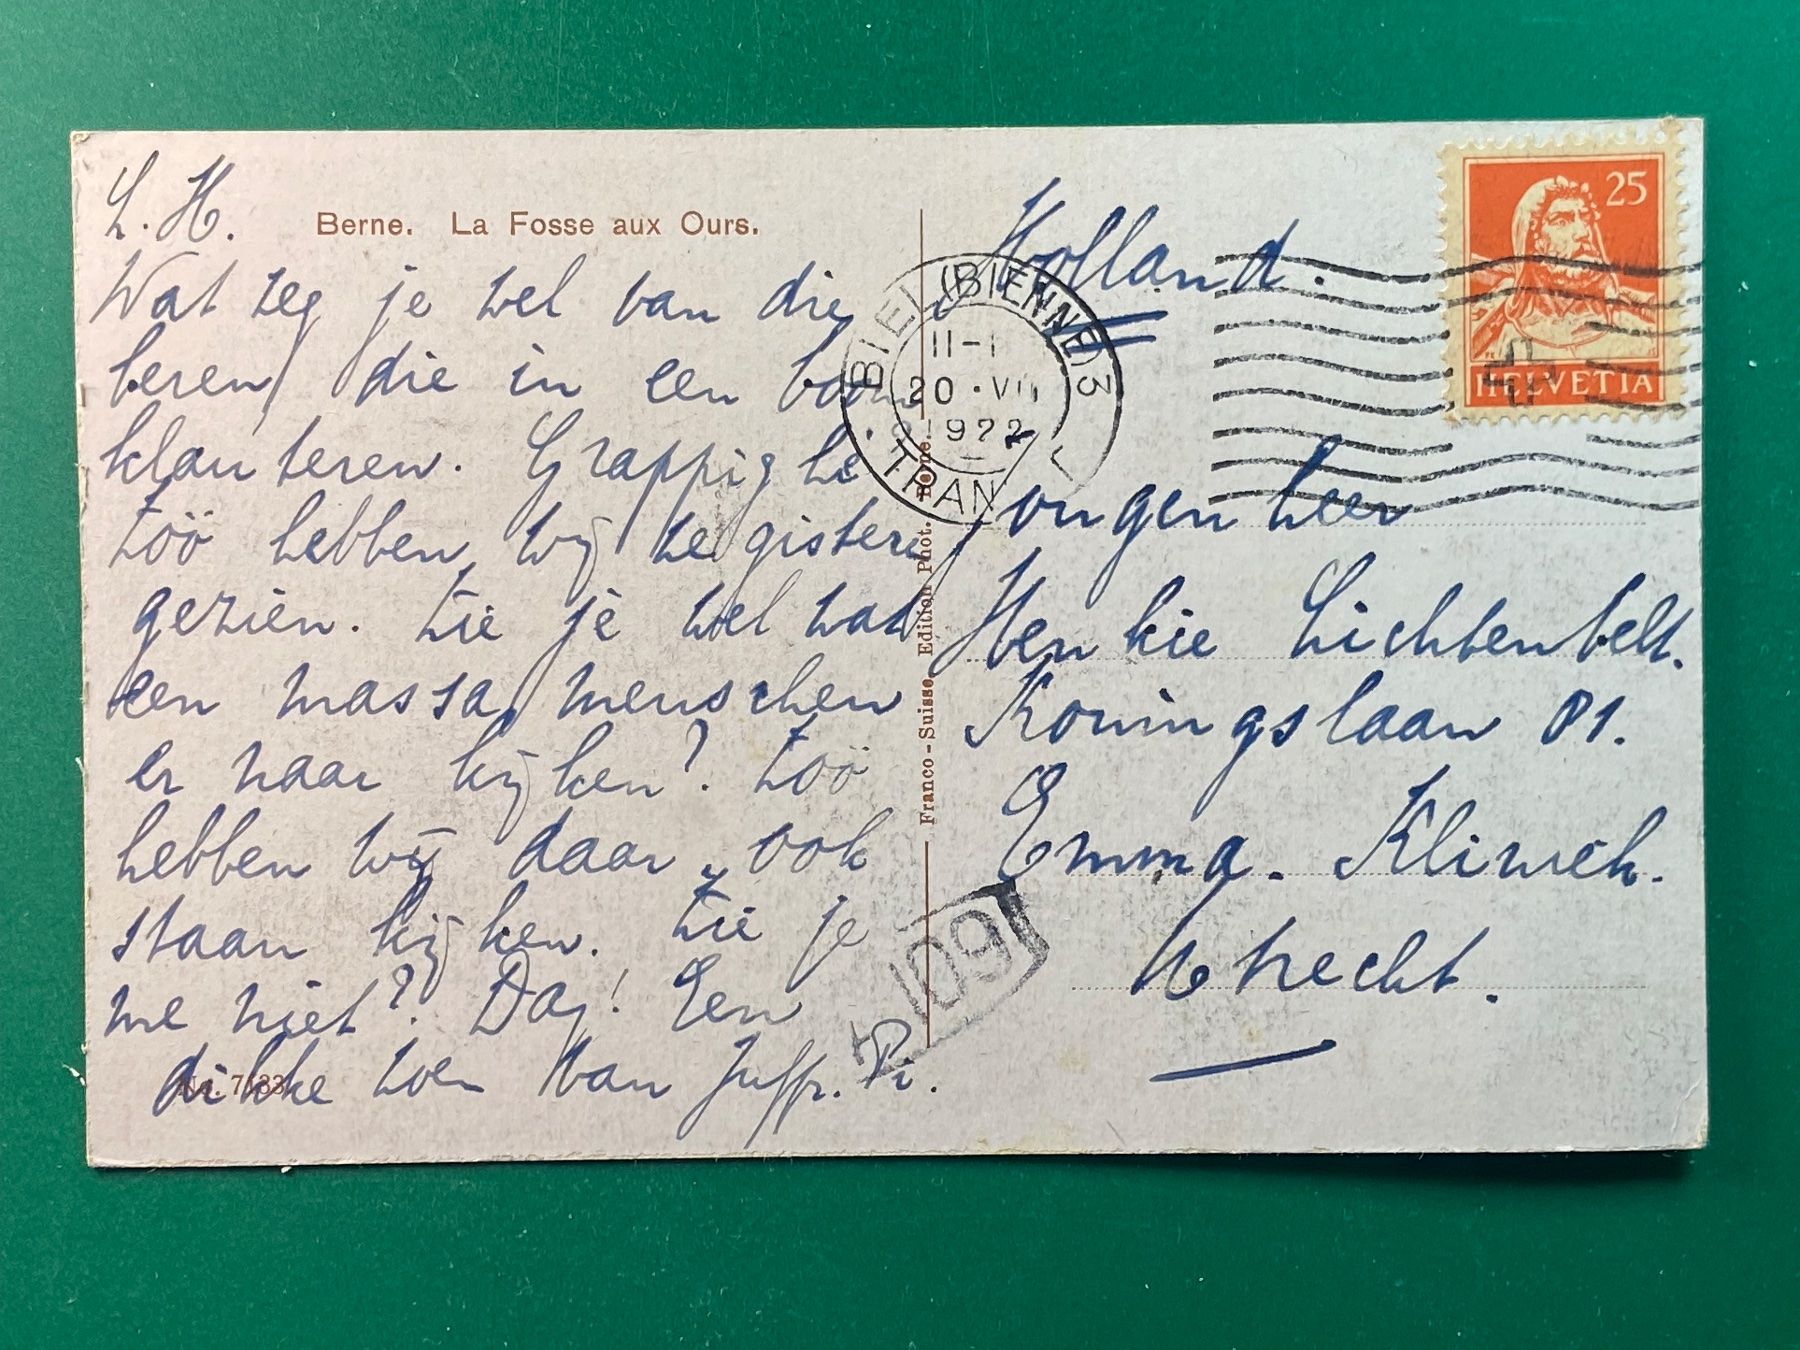 L. H.
Berne. La Fosse aux Ours.
Wat zeg je wel van die
beren, die in een boom
klauteren. Grappig hè
zóó hebben wij ze gisteren
gezien. Zie je wel wat
een massa menschen
er naar kijken? Zóó
hebben wij daar ook
staan kijken. Zie je
me niet? Dag! Een
dikke zoen van Juffr. Pi.
No. 7133
Franco-Suisse, Edition Phot. Berne.
Holland.
Jongenheer
Henkie Lichtenbelt.
Koningslaan 81.
Emma. Kliniek.
Utrecht.
BIEL (BIENNE) 3
11-1
20.VII
1922
TRAN
109
25
HELVETIA